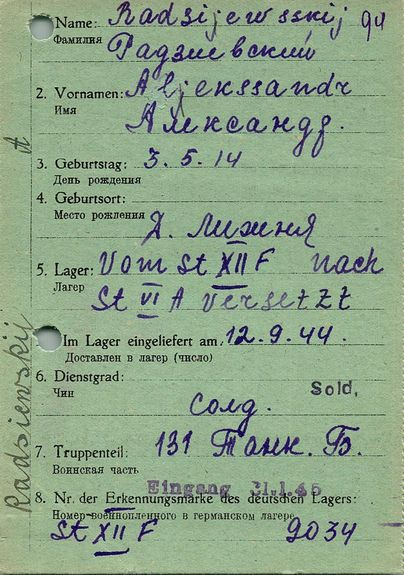 Name: Radsijewsskij 94
Фамилия Радзиевский
2. Vornamen: Aljekssandr
Имя Александр.
3. Geburtstag: 3.5.14
День рождения
4. Geburtsort:
Место рождения
Д. Лижиня
5. Lager: Vom St XII F nach
Лагерь St VI A versetzt
Im Lager eingeliefert am, 12.9.44.
Доставлен в лагерь (число)
6. Dienstgrad: Sold,
Чин
солд.
7. Truppenteil: 131 Танк. Б.
Воинская часть
Eingang 31.1.45
8. Nr. der Erkennungsmarke des deutschen Lagers:
Номер военнопленного в германском лагере
St XII F 9034
Radsiewskij A